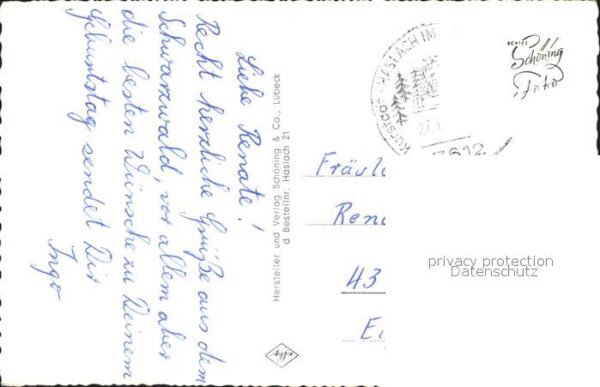 Liebe Renate!
Recht herzliche Grüße aus dem
Schwarzwald, vor allem aber
die besten Wünsche zu Deinem
Geburtstag sendet Dir
Ingo
Hersteller und Verlag Schöning & Co., Lübeck
d Bestellnr. Haslach 21
HASLACH IM
7612
ECHTES
Schöning
Foto
Fräule
Ren
43
E
privacy protection
Datenschutz